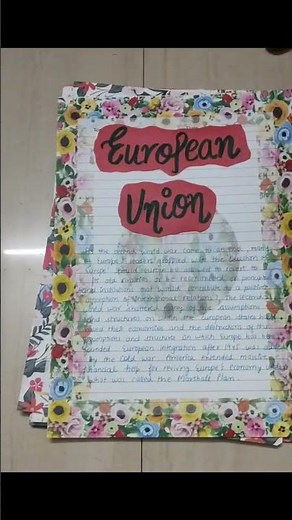 European
Union
As the second world war came to an end, many
of Europe's leaders grappled with the question of
Europe should be allowed to revert to
its old rivalries or be reconstructed on principles
social institutions that could inculcate a positive
conception of international relations. The second
world war shattered many of the assumptions
and structures on which the European states had
based their economies and the destruction of the
assumptions and structure on which Europe has been
founded. European integration after 1945 was aided
by the cold war. America extended massive
financial help for reviving Europe's economy under
what was called the Marshall Plan